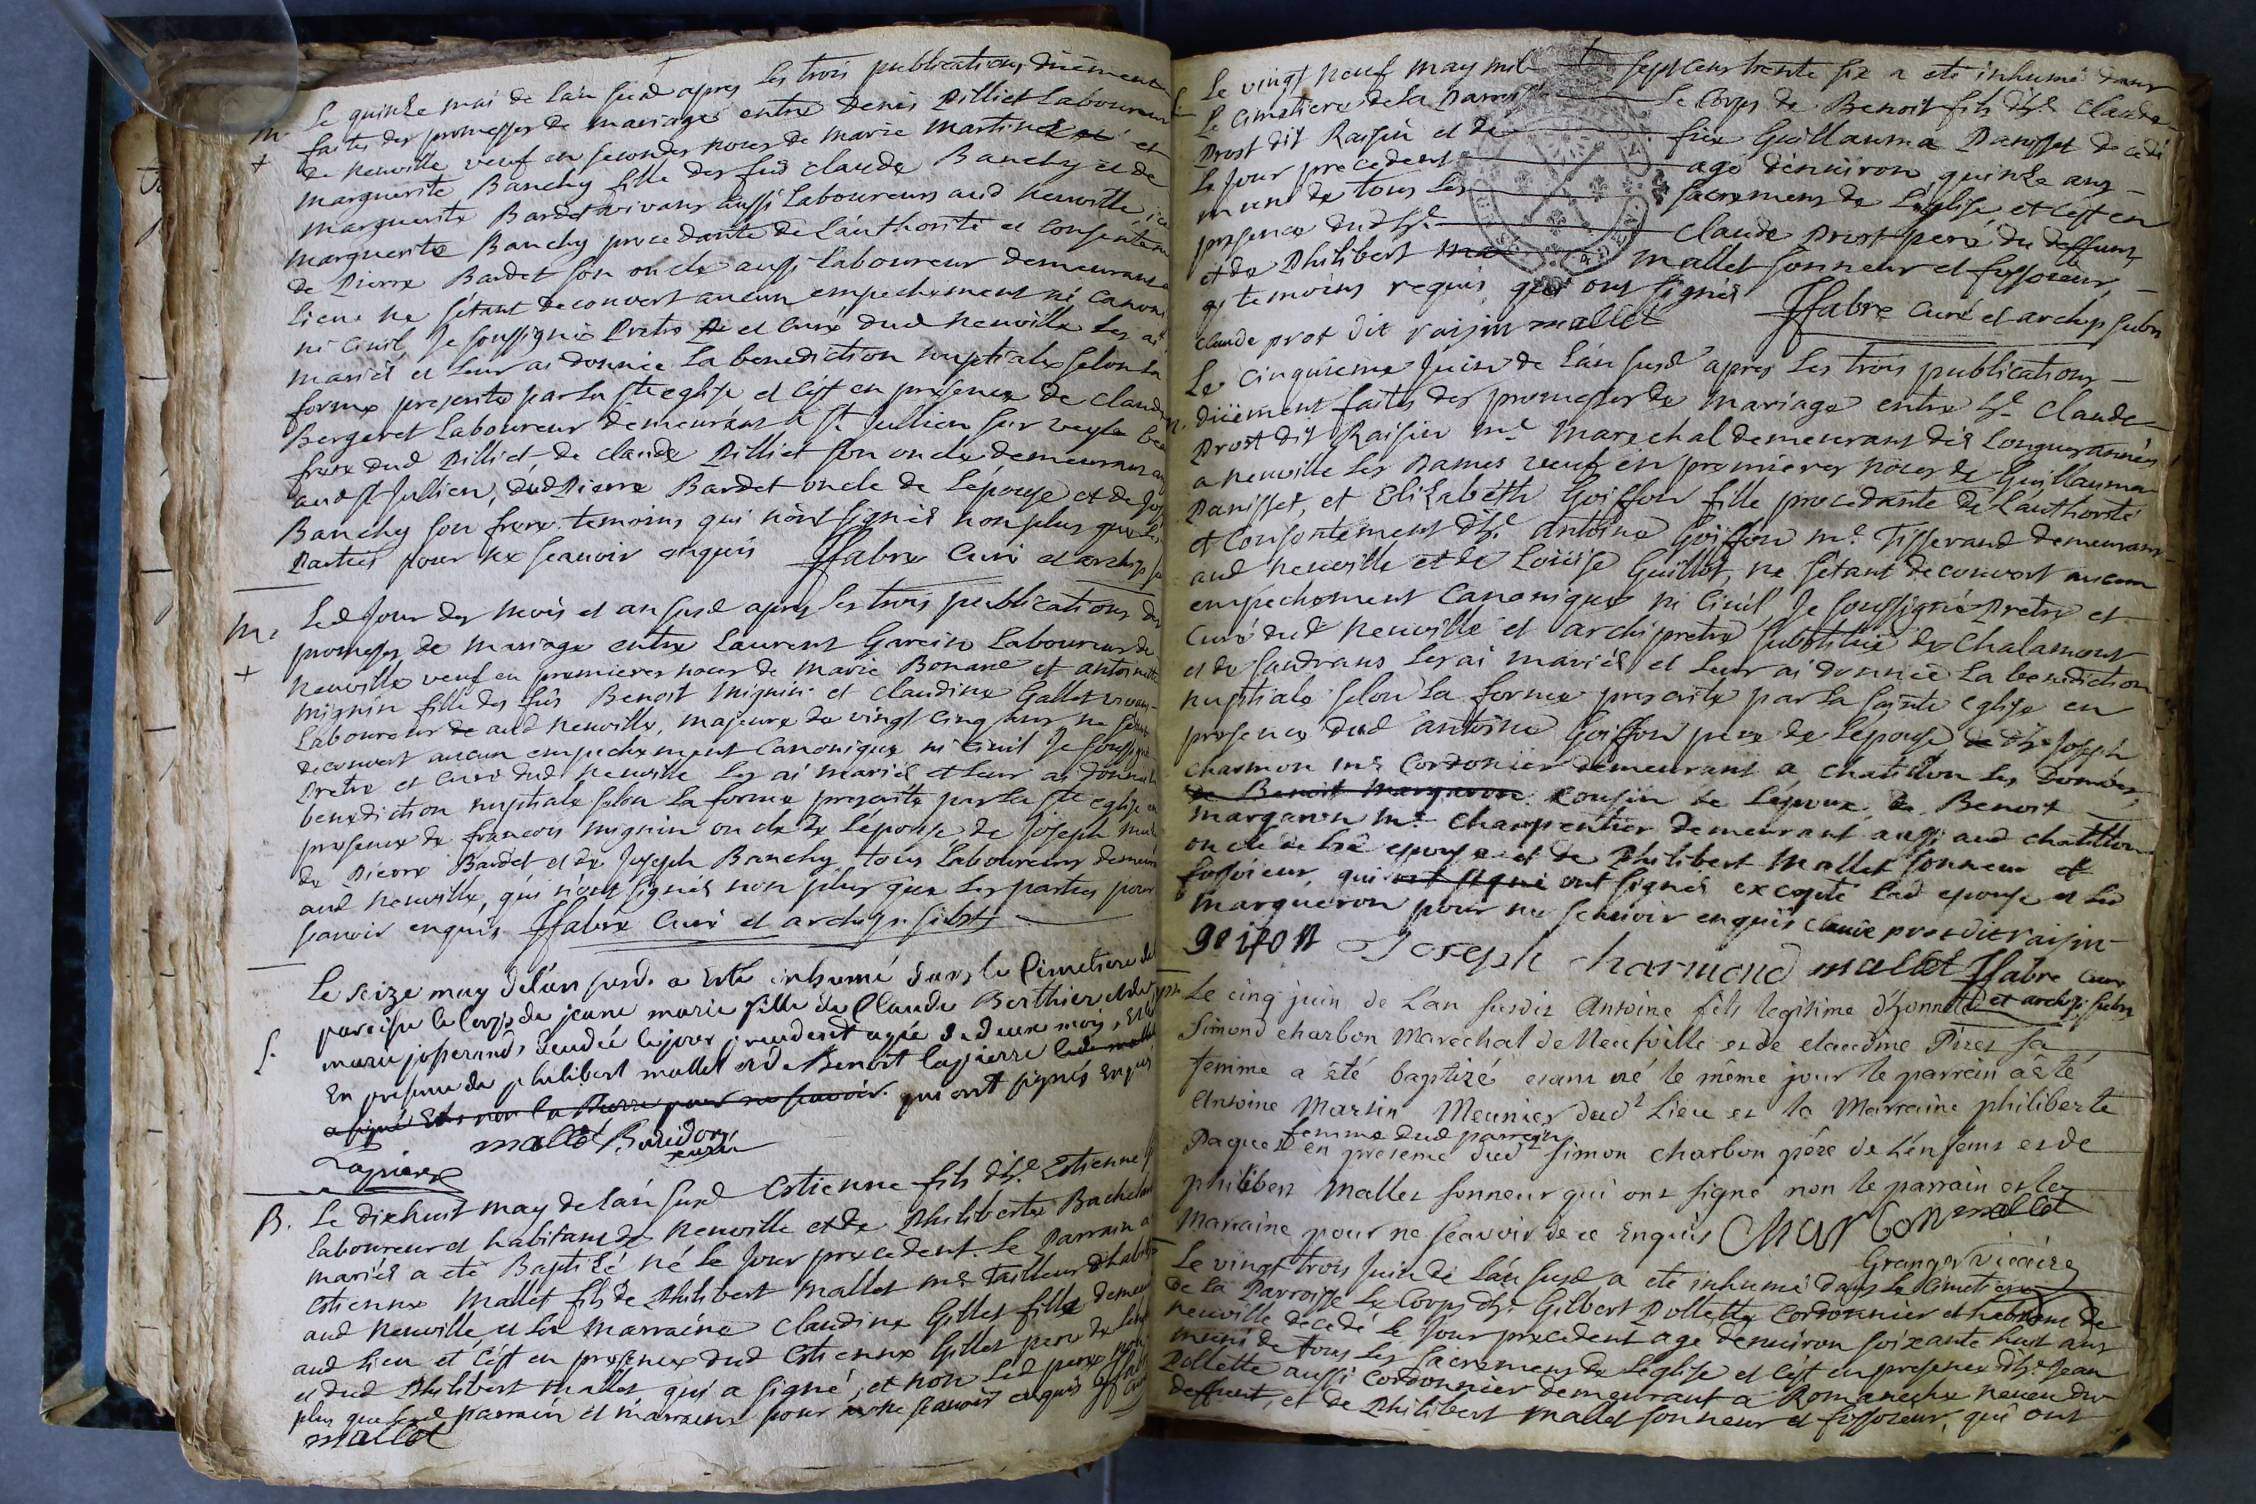 m. Le quinze mai de l'an susd apres les trois publications duëment
faites des promesses de mariages entre Denis Pilliet Laboureur
+ de neuville veuf en secondes noces de marie Martinet et
marguerite Banchy fille des fûs claude Banchy et de
marguerite Bardet vivans aussi Laboureurs aud neuville, 
marguerite Banchy procedante de l'authorité et consenteme
de Pierre Bardet son oncle aussi laboureur demeurant
lieu. ne s'étant decouvert aucun empechement ni canoni
ni civil Je soussigné Pretre et curé dud neuville les ai
mariés et leur ai donnée La benediction nuptiale selon la
forme prescrite par La ste eglise et c'est en presence de claude
Bergeret Laboureur demeurant à st jullien sur veyle beau
frere dud Pilliet, de claude Pilliet son oncle demeurant
aud st Jullien, dud Pierre Bardet oncle de l'épouse et de
Banchy son frere temoins qui n'ont signés non plus que les
Parties pour ne scavoir enquis ffabre Curé et archip
m. Led Jour des mois et an susd apres les trois publications des
promesses de mariage entre Laurent Garcin Laboureur de
+ neuville veuf en premieres noces de marie Bonare et antoinette
mignin fille des fûs Benoit mignin et claudine Gallet vivans
Laboureur de aud neuville, majeure de vingt cinq ans ne s'étant
decouvert aucun empechement canonique ni civil Je soussigné
Pretre et Curé dud neuville les ai mariés et leur ai donnée la
benediction nuptiale selon la forme prescrite par la ste eglise en
presence de francois mignin oncle de L'épouse, de Joseph
de Pierre Bardet, et de Joseph Banchy tous Laboureurs demeur
aud neuville, qui n'ont signés non plus que les parties pour
scavoir enquis ffabre Curé et archip. subst
Le seize may de l'an susd. a eté inhumé dans le Cimetiere de
paroisse le Corps de jeane marie fille de Claude Berthier et de
S. marie josserand, decedée le jour precedent agée de deux mois, et
En presence de philibert mallet et de Benoit lapierre led mallet
a signé et non la Pierre pour ne scavoir. qui ont signés enquis
mallet
Lapierre
B. Le dixhuit may de l'an susd Estienne fils d'h. Estienne
laboureur et habitant de neuville et de Philiberte Bachelard
mariés a eté Baptisé né le Jour precedent. Le Parrain a
Estienne Mallet fils de Philibert Mallet me Tailleur d'habits
aud neuville et la marraine Claudine Gillet fille demeur
aud lieu et c'est en presence dud Estienne Gillet pere de l'enf
et dud Philibert Mallet qui a signé, et non led pere non
plus que lesd parrain et marraine pour ne scavoir enquis ffabre
mallet Curé
S. Le vingt neuf may mil sept cens trente six a eté inhumé dans
le cimetiere de la Parroisse le Corps de Benoit fils d'h. claude
Prost dit Raisin et de füe Guillauma Panisset decedé
le Jour precedent agé d'environ quinze ans
muni de tous les sacremens de l'eglise et c'est en
presence dud h. claude Prost pere du deffunt
et de Philibert mallet sonneur et fossoieur,
temoins requis, qui ont signés
claude prot dit raisin mallet ffabre Curé et archip subst
Le cinquieme Juin de l'an susd apres les trois publications
m. duëment faites des promesses de mariage entre h. claude
Prost dit Raisin me marechal demeurant dès longues années
a neuville les Dames veuf en premieres noces de Guillauma
Panisset, et Elizabeth Goiffon fille procedante de l'authorité
et consentement d'h. antoine Goiffon me Tisserand demeurant
aud neuville et de Loüise Guillot, ne s'étant decouvert aucun
empechement canonique ni civil Je soussigné Pretre et
Curé dud neuville et archipretre substitué de chalamont
et de sandrans les ai mariés et leur ai donnée la benediction
nuptiale selon la forme prescrite par la sainte eglise en
presence dud antoine Goiffon pere de l'epouse de d'h. Joseph
charmon me Cordonier demeurant a chatillon les Dombes,
de Benoit margaron cousin de l'époux, de Benoit
margaron me charpentier demeurant aussi aud chatillon
oncle de lad epouse et de Philibert Mallet sonneur et
fossoieur, qui ont signé ont signés excepté lad epouse et led
Margueron pour ne scavoir enquis claude prot dit raisin
goifon Joseph charmond mallet ffabre curé
et archip. subst
Le cinq juin de l'an susdit Antoine fils legitime d'honnete
Simond charbon Marechal de Neufville et de claudine Piret sa
femme a été baptizé etant né le même jour le parrain a été
Antoine Martin Meunier dud Lieu et la Marraine philiberte
Paquet femme dud parrain en presence dud Simon charbon père de l'enfant et de
philibert Mallet sonneur qui ont signé non le parrain et la
Marraine pour ne scavoir de ce enquis Charbon mallet
Granger Vicaire
Le vingt trois Juin de l'an susd a eté inhumé dans le Cimetiere
de la Parroisse le Corps d'h. Gilbert Pollette Cordonnier et habitant de
neuville decedé le Jour precedent agé d'environ soixante huit ans
muni de tous les sacremens de l'eglise et c'est en presence d'h. Jean
Pollette aussi cordonnier demeurant a Romaneche neveu du
deffunt, et de Philibert mallet sonneur et fossoieur, qui ont